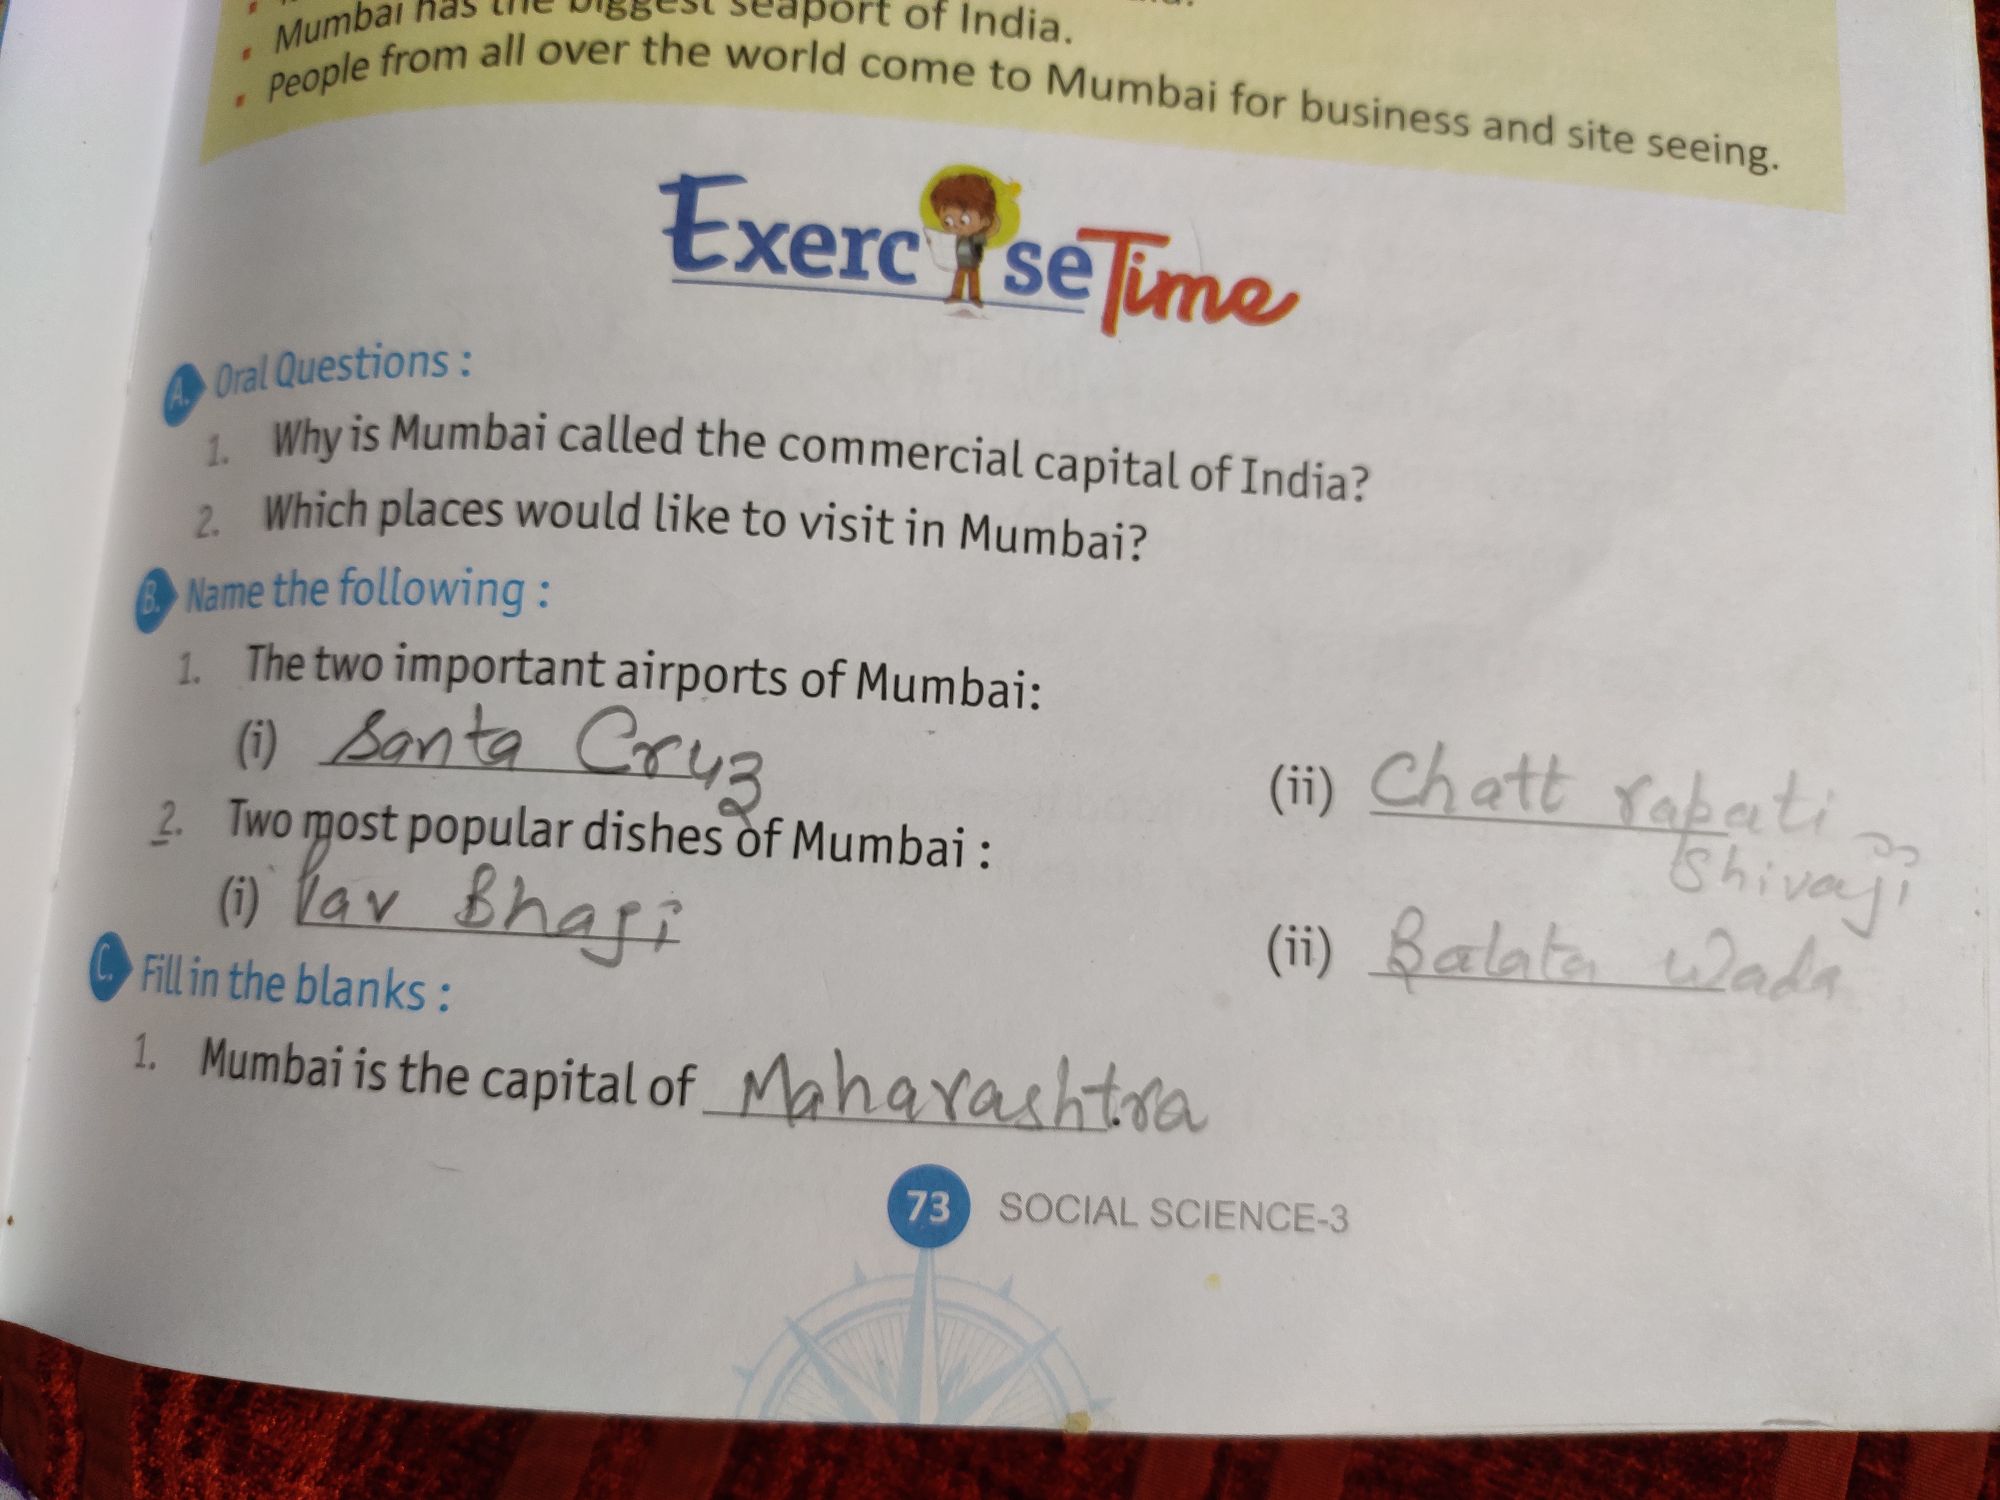 Mumbai has the biggest seaport of India.
People from all over the world come to Mumbai for business and site seeing.
Exercise Time
A. Oral Questions :
1. Why is Mumbai called the commercial capital of India?
2. Which places would like to visit in Mumbai?
B. Name the following :
1. The two important airports of Mumbai:
(i) Santa Cruz (ii) Chatt rapati
Shivaji
2. Two most popular dishes of Mumbai :
(i) Pav Bhaji (ii) Batata Wada
C. Fill in the blanks :
1. Mumbai is the capital of Maharashtra.
73 SOCIAL SCIENCE-3